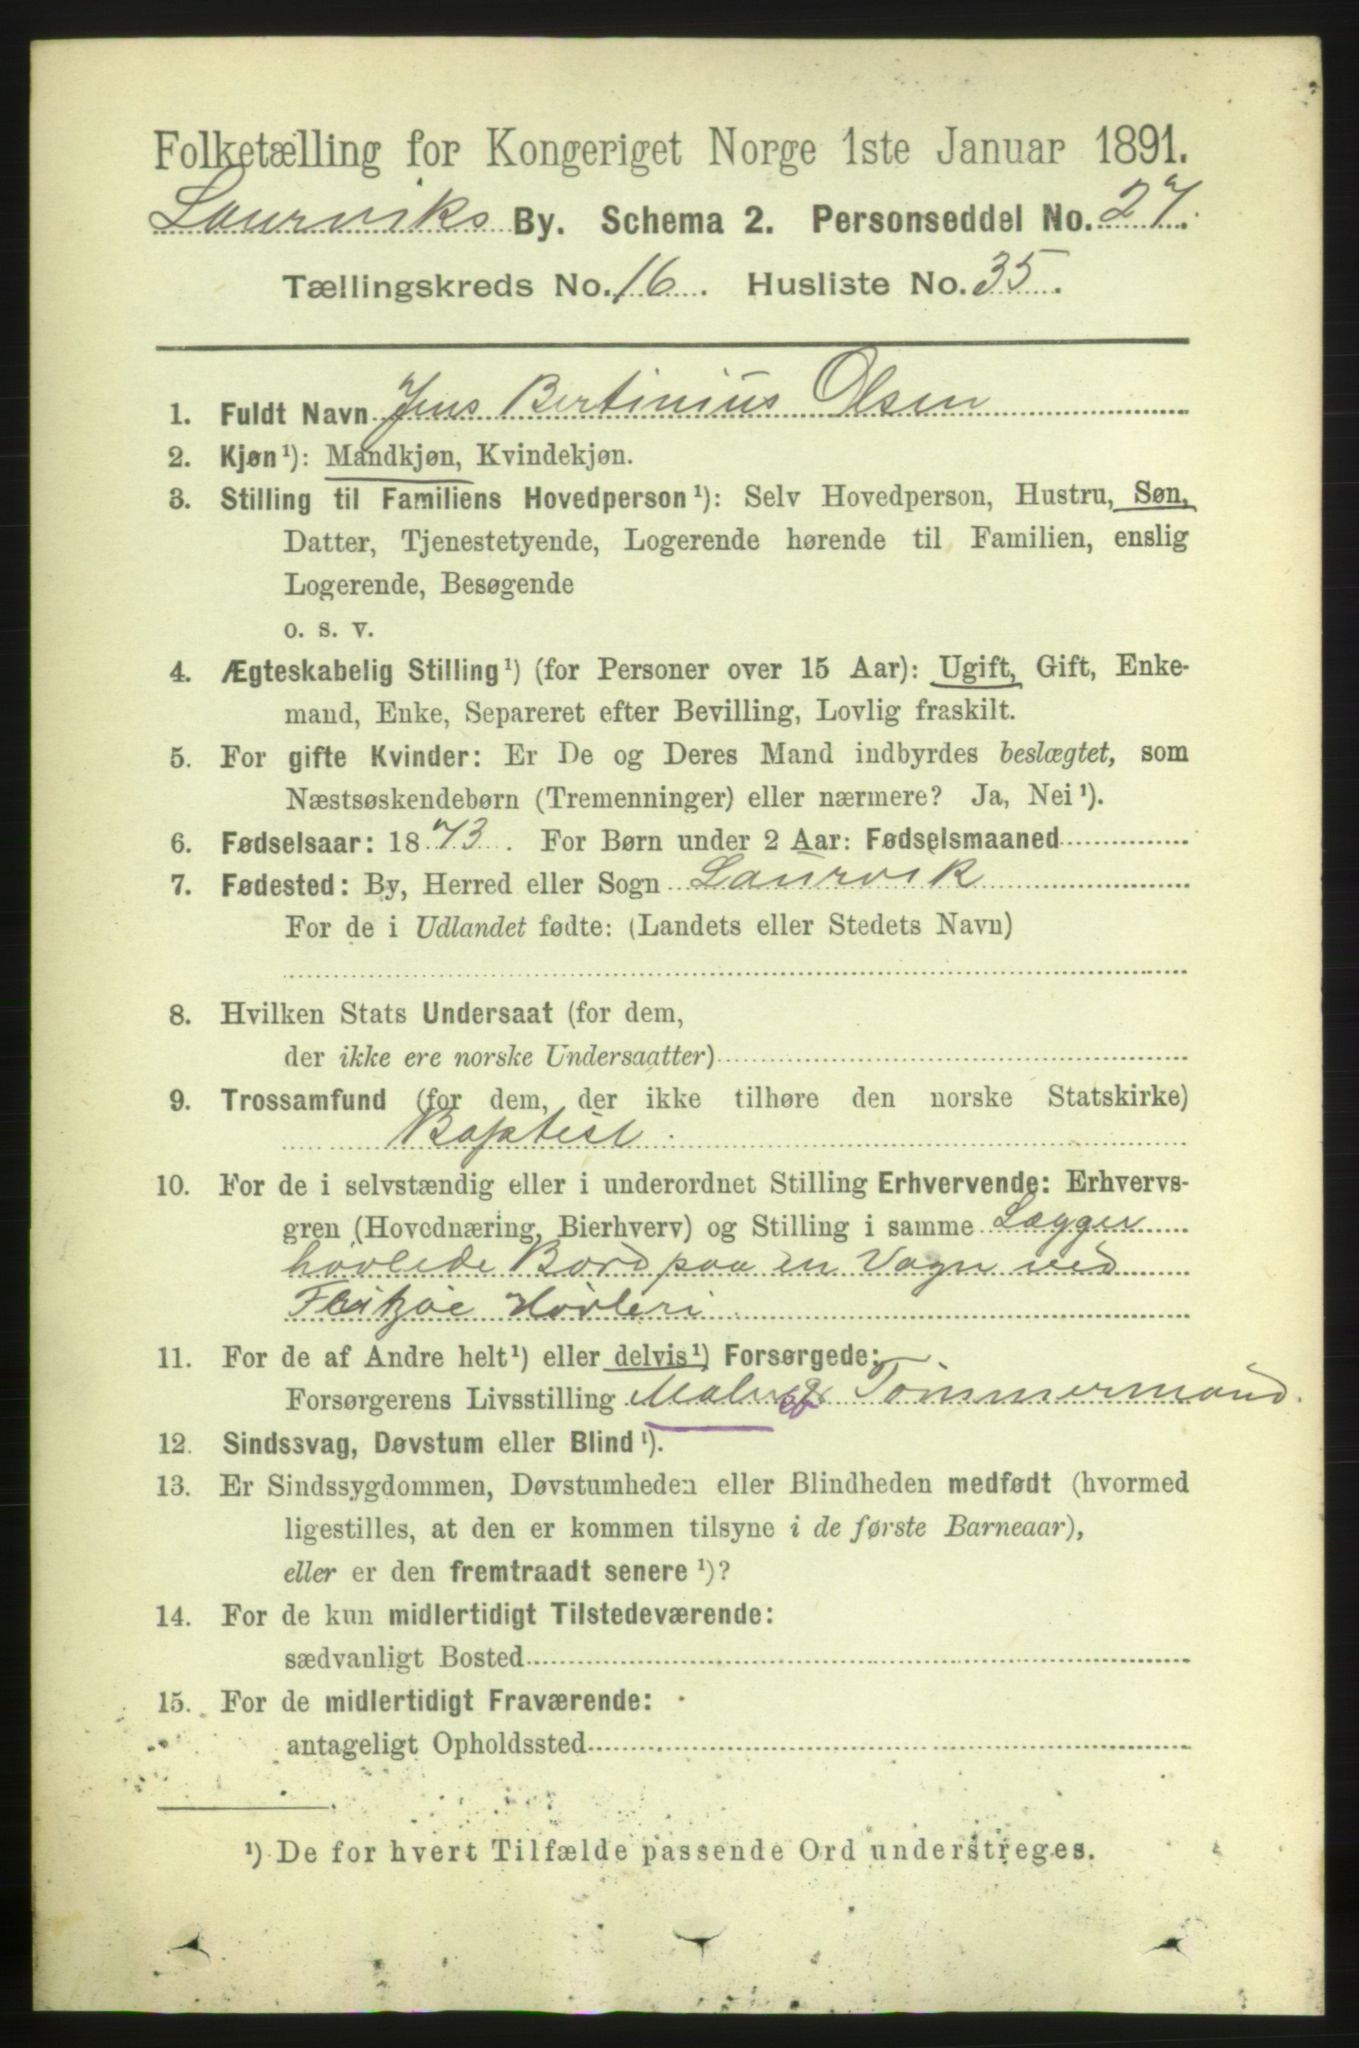 Folketælling for Kongeriget Norge 1ste Januar 1891.
Laurviks By. Schema 2. Personseddel No. 27.
Tællingskreds No. 16. Husliste No. 35.
1. Fuldt Navn Jens Bertinius Olsen
2. Kjøn¹): Mandkjøn, Kvindekjøn.
3. Stilling til Familiens Hovedperson¹): Selv Hovedperson, Hustru, Søn,
Datter, Tjenestetyende, Logerende hørende til Familien, enslig
Logerende, Besøgende
o. s. v.
4. Ægteskabelig Stilling¹) (for Personer over 15 Aar): Ugift, Gift, Enke-
mand, Enke, Separeret efter Bevilling, Lovlig fraskilt.
5. For gifte Kvinder: Er De og Deres Mand indbyrdes beslægtet, som
Næstsøskendebørn (Tremenninger) eller nærmere? Ja, Nei¹).
6. Fødselsaar: 1873. For Børn under 2 Aar: Fødselsmaaned
7. Fødested: By, Herred eller Sogn Laurvik
For de i Udlandet fødte: (Landets eller Stedets Navn)
8. Hvilken Stats Undersaat (for dem,
der ikke ere norske Undersaatter)
9. Trossamfund (for dem, der ikke tilhøre den norske Statskirke)
Baptist
10. For de i selvstændig eller i underordnet Stilling Erhvervende: Erhvervs-
gren (Hovednæring, Bierhverv) og Stilling i samme Lægger
høvlede Bord paa en Vogn ved
Høvleri
11. For de af Andre helt¹) eller delvis¹) Forsørgede:
Forsørgerens Livsstilling Maler Tømmermand.
12. Sindssvag, Døvstum eller Blind¹).
13. Er Sindssygdommen, Døvstumheden eller Blindheden medfødt (hvormed
ligestilles, at den er kommen tilsyne i de første Barneaar),
eller er den fremtraadt senere¹)?
14. For de kun midlertidigt Tilstedeværende:
sædvanligt Bosted
15. For de midlertidigt Fraværende:
antageligt Opholdssted
¹) De for hvert Tilfælde passende Ord understreges.